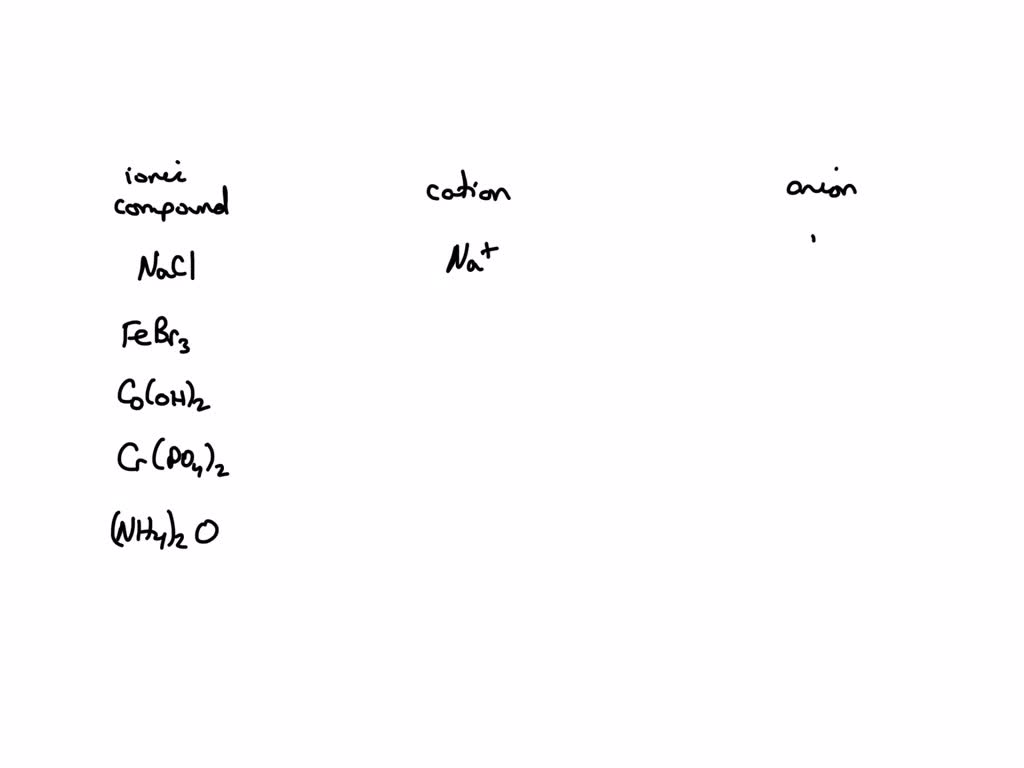 ionic compound cation anion
NaCl Na⁺
FeBr₃
Co(OH)₂
Cr(PO₄)₂
(NH₄)₂O